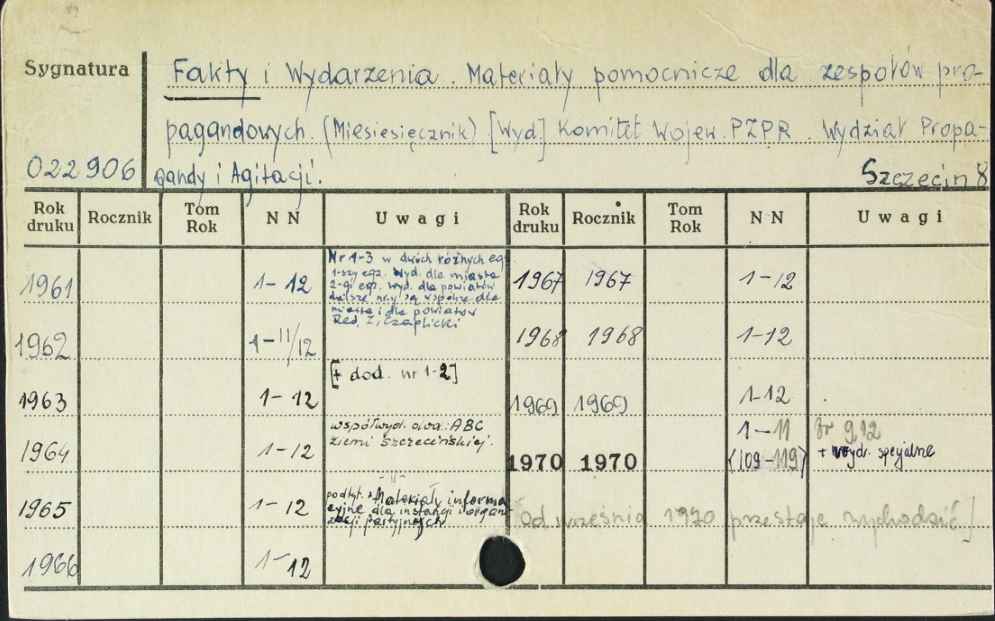 Sygnatura
Fakty i Wydarzenia. Materiały pomocnicze dla zespołów pro-
pagandowych. (Miesiesięcznik) [Wyd] Komitet Wojew. PZPR. Wydział Propa-
022906 gandy i Agitacji. Szczecin 8
Rok druku Rocznik Tom Rok NN Uwagi Rok druku Rocznik Tom Rok NN Uwagi
1961 1-12
Nr 1-3 w dwóch różnych egz.
1-szy egz. Wyd. dla miasta
2-gi egz. wyd. dla powiatów
dalsze nry są wspólne dla
miasta i dla powiatów
Red. Z. Czaplicki
1962 1-11/12
[+ dod. nr 1-2]
1963 1-12
1964 1-12
współwyd. dwa: ABC
ziemi Szczecińskiej.
1965 1-12
podtyt.: Materiały informa
cyjne dla instancji i organi
zacji partyjnych
1966 1-12
1967 1967 1-12
1968 1968 1-12
1969 1969 1-12
1970 1970 1-11 (109-119)
nr 9, 12
+ wyd. specjalne
[Od września 1970 przestaje wychodzić]